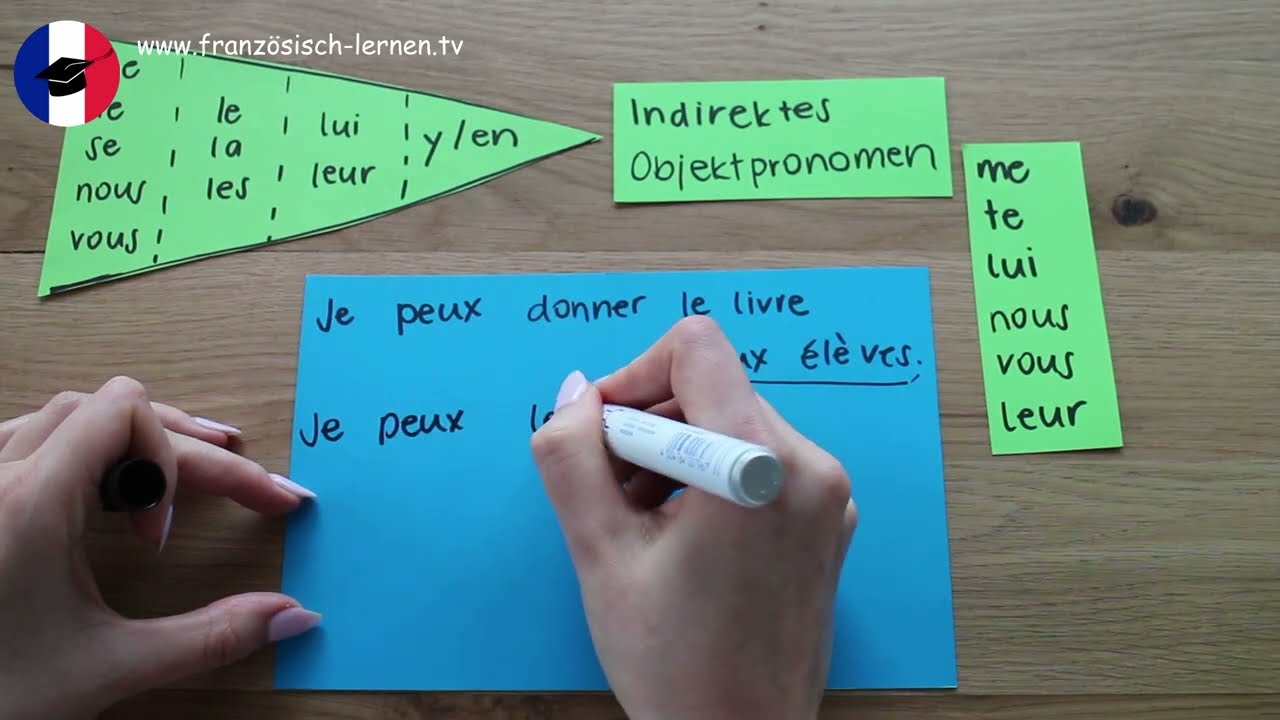 www.französisch-lernen.tv
se
nous
vous
le
la
les
lui
leur
y/en
Indirektes
Objektpronomen
me
te
lui
nous
vous
leur
Je peux donner le livre
élèves.
Je peux